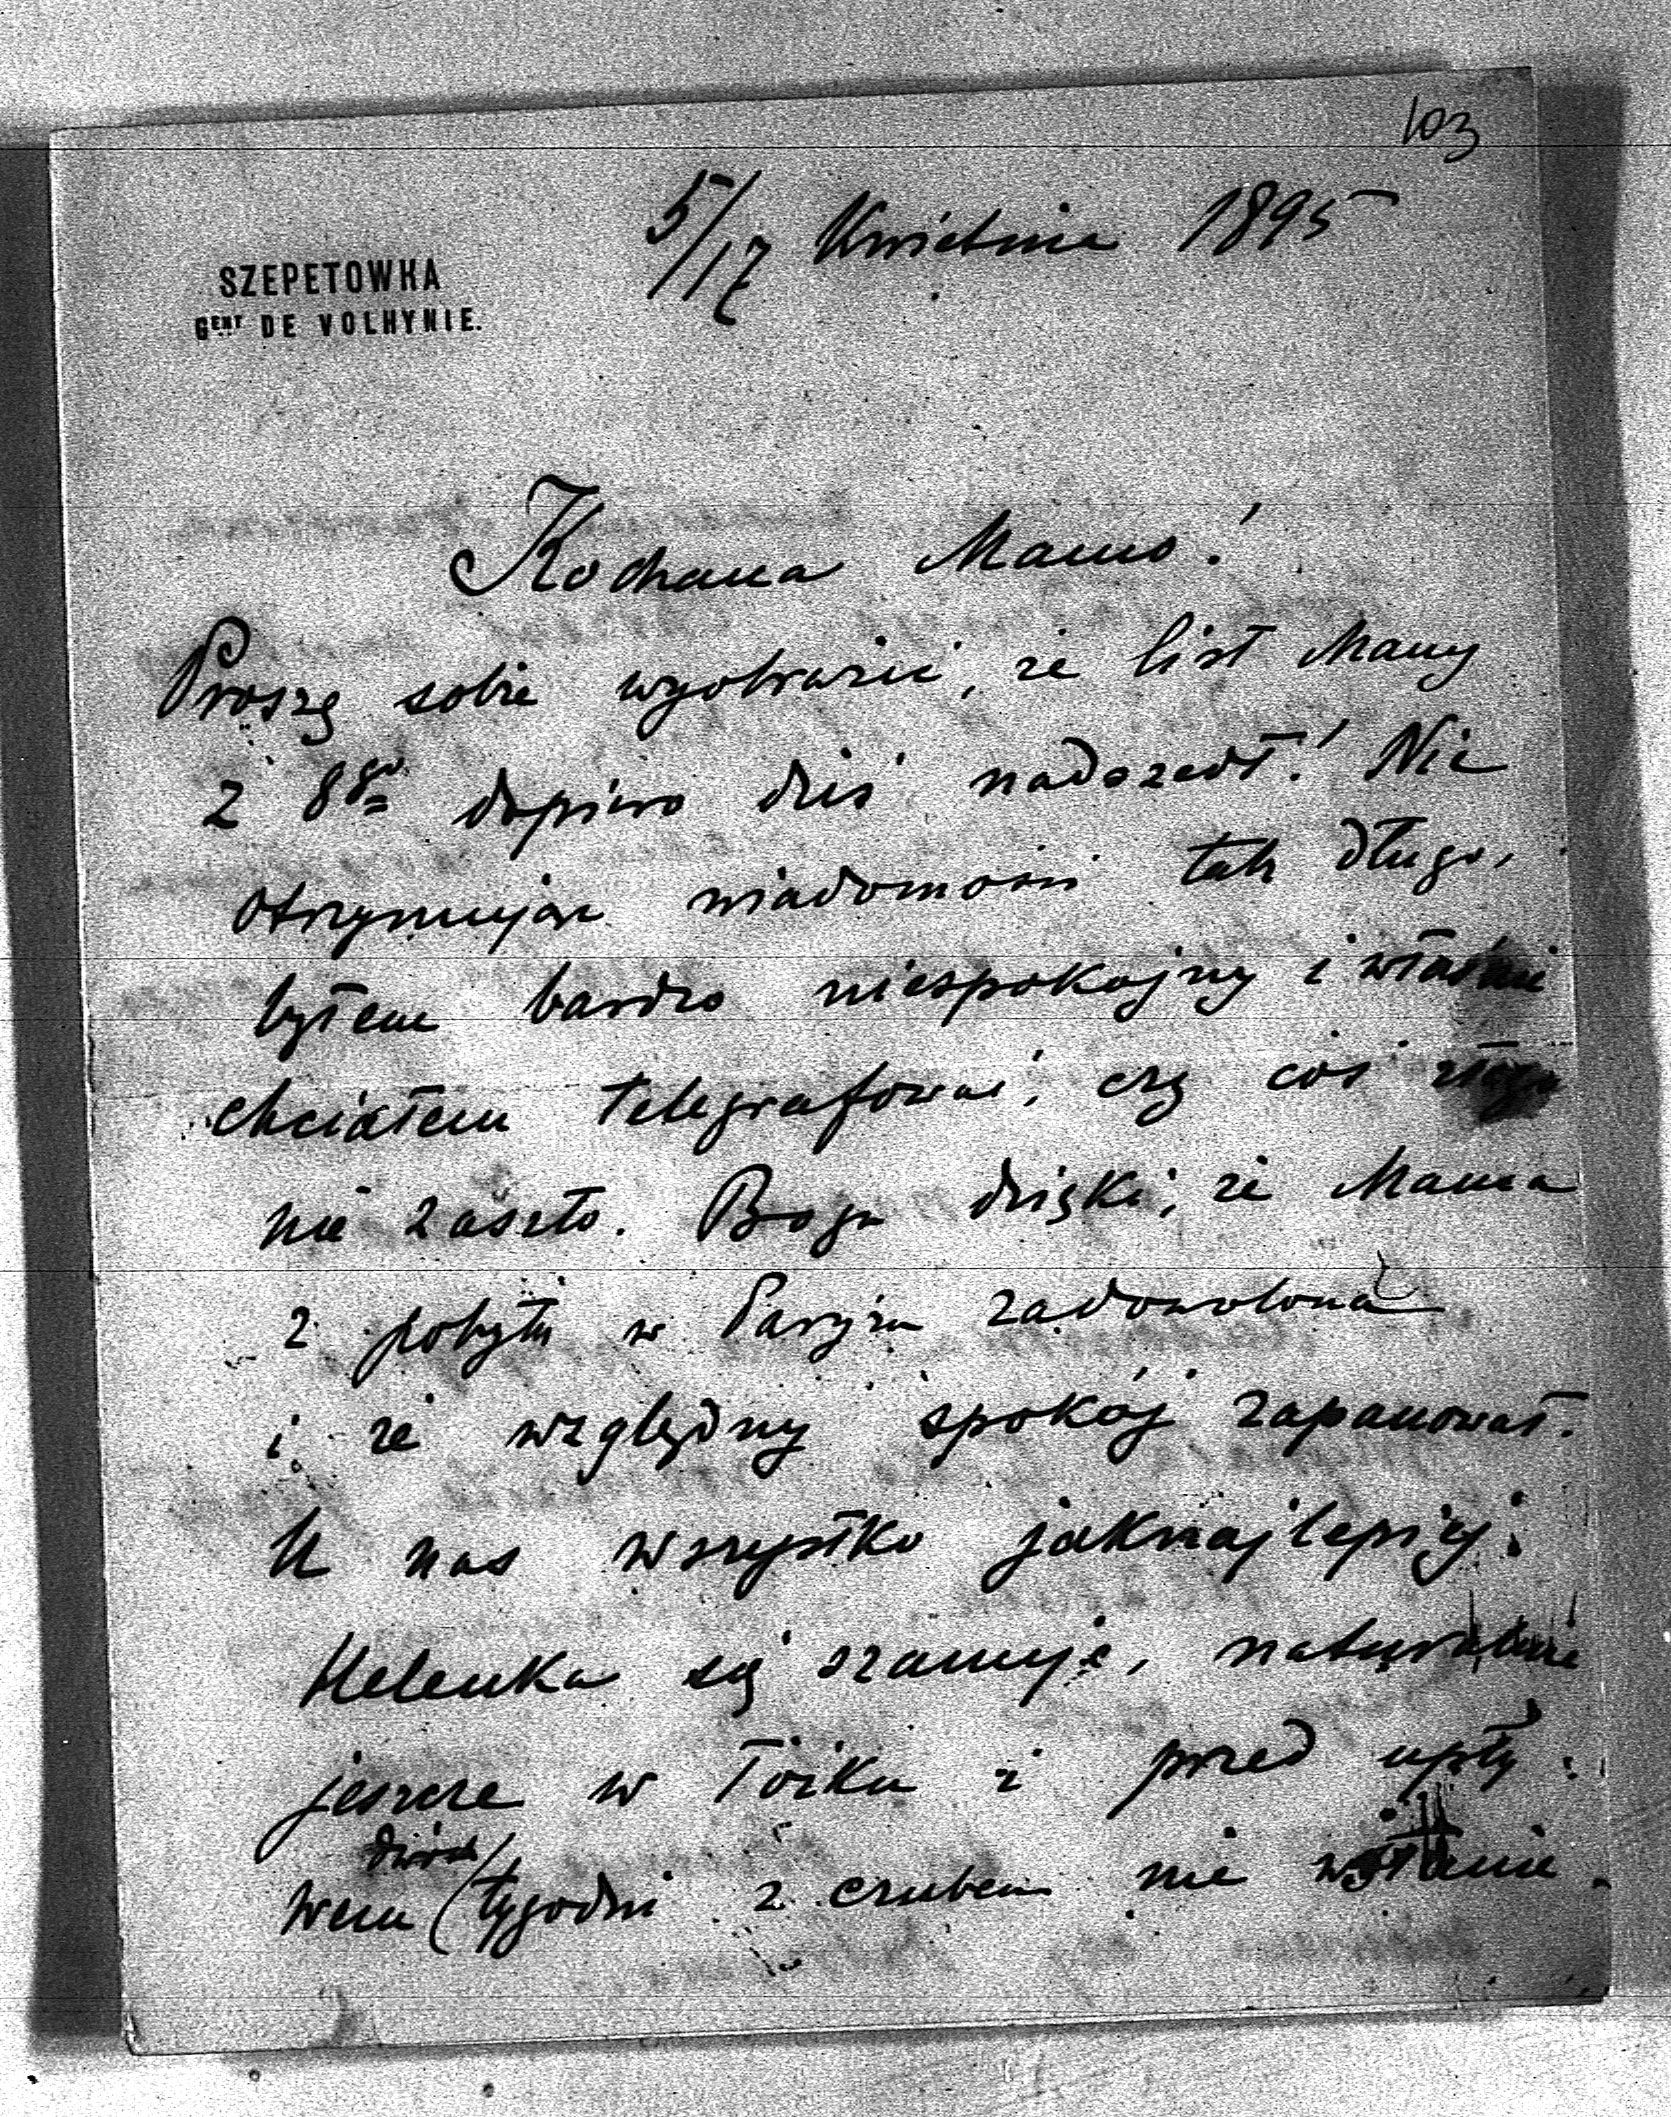 103
5/17 Kwietnia 1895
SZEPETOWKA
GENT DE VOLHYNIE.
Kochana Mamo!
Proszę sobie wyobrazić, że list Mamy
z 8go dopiero dziś nadszedł! Nie
otrzymując wiadomości tak długo,
byłem bardzo niespokojny i właśnie
chciałem telegrafować, czy coś złego
nie zaszło. Bogu dzięki, że Mama
z pobytu w Paryżu zadowolona
i że względny spokój zapanował.
U nas wszystko jaknajlepiej.
Helenka się szanuje, naturalnie
jeszcze w łóżku i przed upły-
dwóch
wem tygodni z czubem nie wstanie.